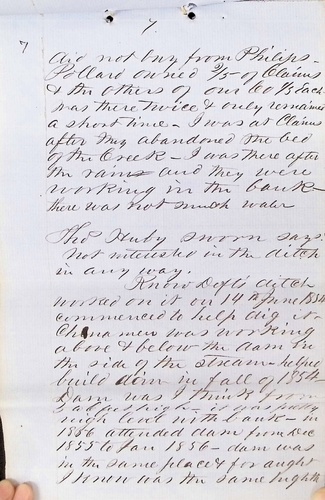 7
7
did not buy from Philips-
Pollard owned 2/5- of Claims
& the others of our Co 1/5 Each
was there twice & only remained
a short time - I was at Claims
after they abandoned the bed
of the Creek - I was there after
the rains and they were
working in the bank -
there was not much water
Thos Huby sworn says.
Not interested in the ditch
in any way.
Know Defts ditch
worked on it on 14th June 1854
commenced to help dig it -
Chinamen was working
above & below the dam in
the side of the stream - helped
build dam in fall of 1854 -
Dam was I think from
high - it was fully
high level with bank - in
1856 attended dam from Dec
1855 to Jan 1856 - dam was
in the same place & for aught
I know was the same highth